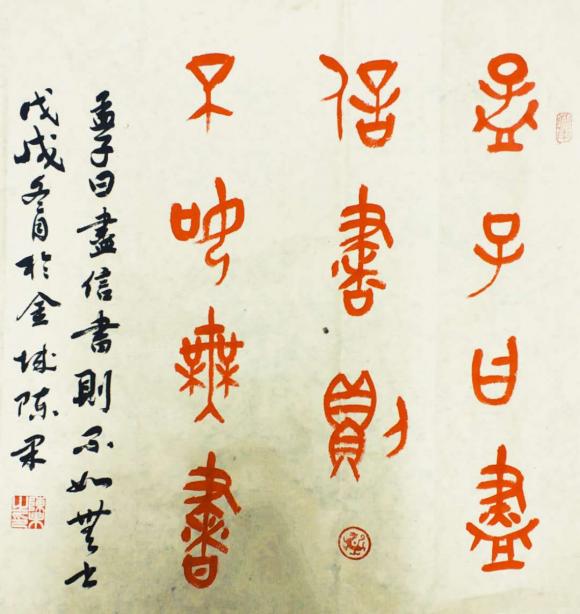 孟子曰盡
信書則
不如無書
孟子曰盡信書則不如無書
戊戌冬月於金城陳果